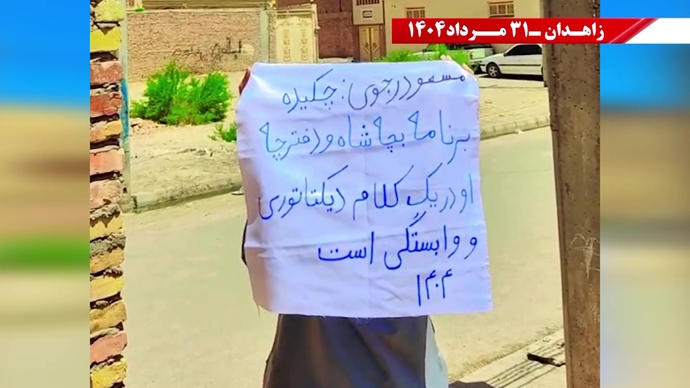 زاهدان ـ۳۱ مـرداد۱۴۰۴
مسعود رجوی: چکیده
برنامه بچه شاه و دفترچه
او در یک کلام دیکتاتوری
و وابستگی است
۱۴۰۴